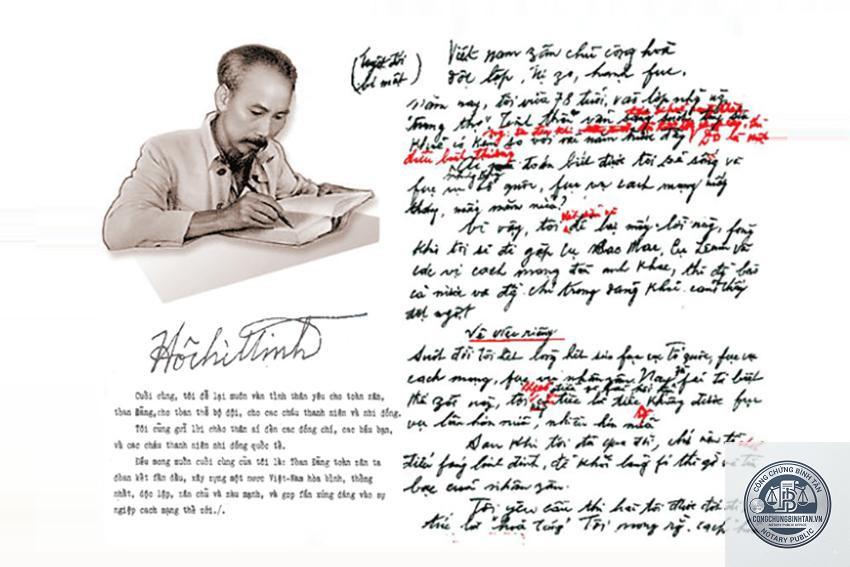 Hồ Chí Minh
Cuối cùng, tôi để lại muôn vàn tình thân yêu cho toàn zân,
toàn Đảng, cho toàn thể bộ đội, cho các cháu thanh niên và nhi đồng.
Tôi cũng gửi lời chào thân ái đến các đồng chí, các bầu bạn,
và các cháu thanh niên nhi đồng quốc tế.
Điều mong muốn cuối cùng của tôi là: Toàn Đảng toàn zân ta
đoàn kết fấn đấu, xây zựng một nước Việt-Nam hòa bình, thống
nhất, độc lập, zân chủ và zàu mạnh, và góp fần xứng đáng vào sự
nghiệp cách mạng thế zới./.
(tuyệt đối
bí mật)
Việt nam zân chủ cộng hoà
độc lập, tự zo, hạnh fúc.
Năm nay, tôi vừa 78 tuổi, vào lớp những người
"trung thọ". Tinh thần vẫn
khoẻ có kém so với vài năm trước đây Đó là một
điều bình thường
toán biết được tôi sẽ sống và
fục vụ tổ quốc, fục vụ cách mạng mấy
tháng, mấy năm nữa?
Vì vậy, tôi để lại mấy lời này, fòng
khi tôi sẽ đi gặp cụ Các Mác, cụ Lênin và
các vị cách mạng đàn anh khác, thì đồng bào
cả nước và đồng chí trong đảng khỏi cảm thấy
đột ngột
Về việc riêng
Suốt đời tôi hết lòng hết sức fục vụ Tổ quốc, fục vụ
cách mạng, fục vụ nhân zân. Nay zù fải từ biệt
thế zới này, tôi tiếc là tiếc không được fục
vụ lâu hơn nữa, nhiều hơn nữa
Sau khi tôi đã qua đời, chớ nên tổ chức
điếu fúng linh đình, để khỏi lãng fí thì giờ và tiền
bạc của nhân zân.
Tôi yêu cầu thi hài tôi được đốt đi
tức là "hoả táng" Tôi mong rằng cách
CÔNG CHỨNG BÌNH TÂN
CONGCHUNGBINHTAN.VN
NOTARY PUBLIC OFFICE
NOTARY PUBLIC